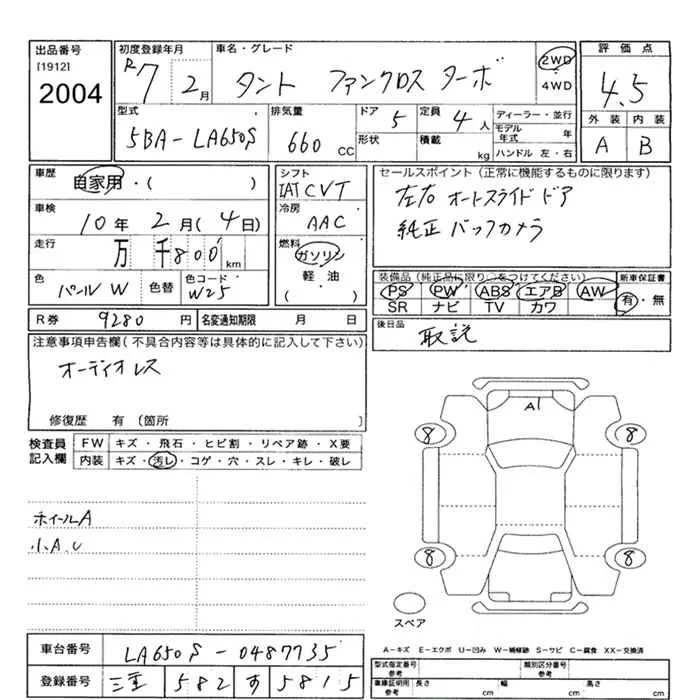 出品番号 初度登録年月 車名・グレード 2WD 4WD 評価点
[1912]
2004
R7 2月 タント ファンクロス ターボ 4.5
型式 排気量 ドア 定員 ディーラー・並行 外装 内装
5BA-LA650S 660 CC 5 4人 モデル年式 年 A B
形状 積載 kg ハンドル 左・右
車歴 自家用・( ) シフト IAT CVT
セールスポイント (正常に機能するものに限ります)
左右 オートスライドドア
純正 バックカメラ
車検 10年 2月 (4日) 冷房 AAC
走行 万 千800 km 燃料 ガソリン 軽・油 ( )
色 パール W 色替 色コード W25
装備品 (純正品に限り○をつけてください) 新車保証書
PS PW ABS エアB AW 有・無
SR ナビ TV カワ
R券 9280 円 名変通知期限 月 日
後日品 取説
注意事項申告欄 (不具合内容等は具体的に記入して下さい)
オーディオレス
修復歴 有 (箇所 )
検査員記入欄 FW キズ・飛石・ヒビ割・リペア跡・X要
内装 キズ・汚レ・コゲ・穴・スレ・キレ・破レ
A1
8 8
ホイールA
小A、U
8 8
スペア
車台番号 LA650S-0487735
登録番号 三重 582 す 5815
A-キズ E-エクボ U-凹み W-補修跡 S-サビ C-腐食 XX-交換済
型式指定番号 参考 類別区分番号 参考
車庫証明用 参考 長さ cm 幅 cm 高さ cm